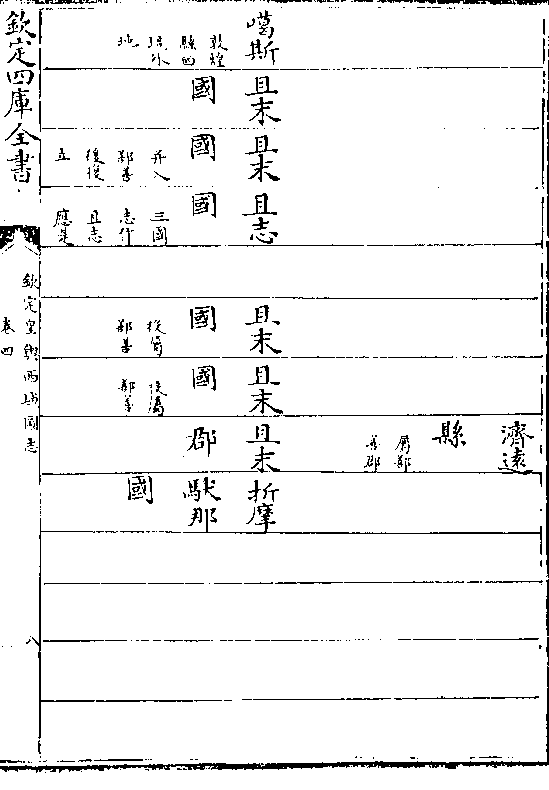 欽定四庫全書
欽定皇輿西域圖志
卷四
八
噶斯
敦煌
縣西
流沙
地
且末
國
且末
國
并入
鄯善
後復
立
且志
國
三國
志作
且志
應是
且末
國
役屬
鄯善
且末
國
役屬
鄯善
濟遠
縣
屬鄯
善郡
且末
郡
折摩
馱那
國